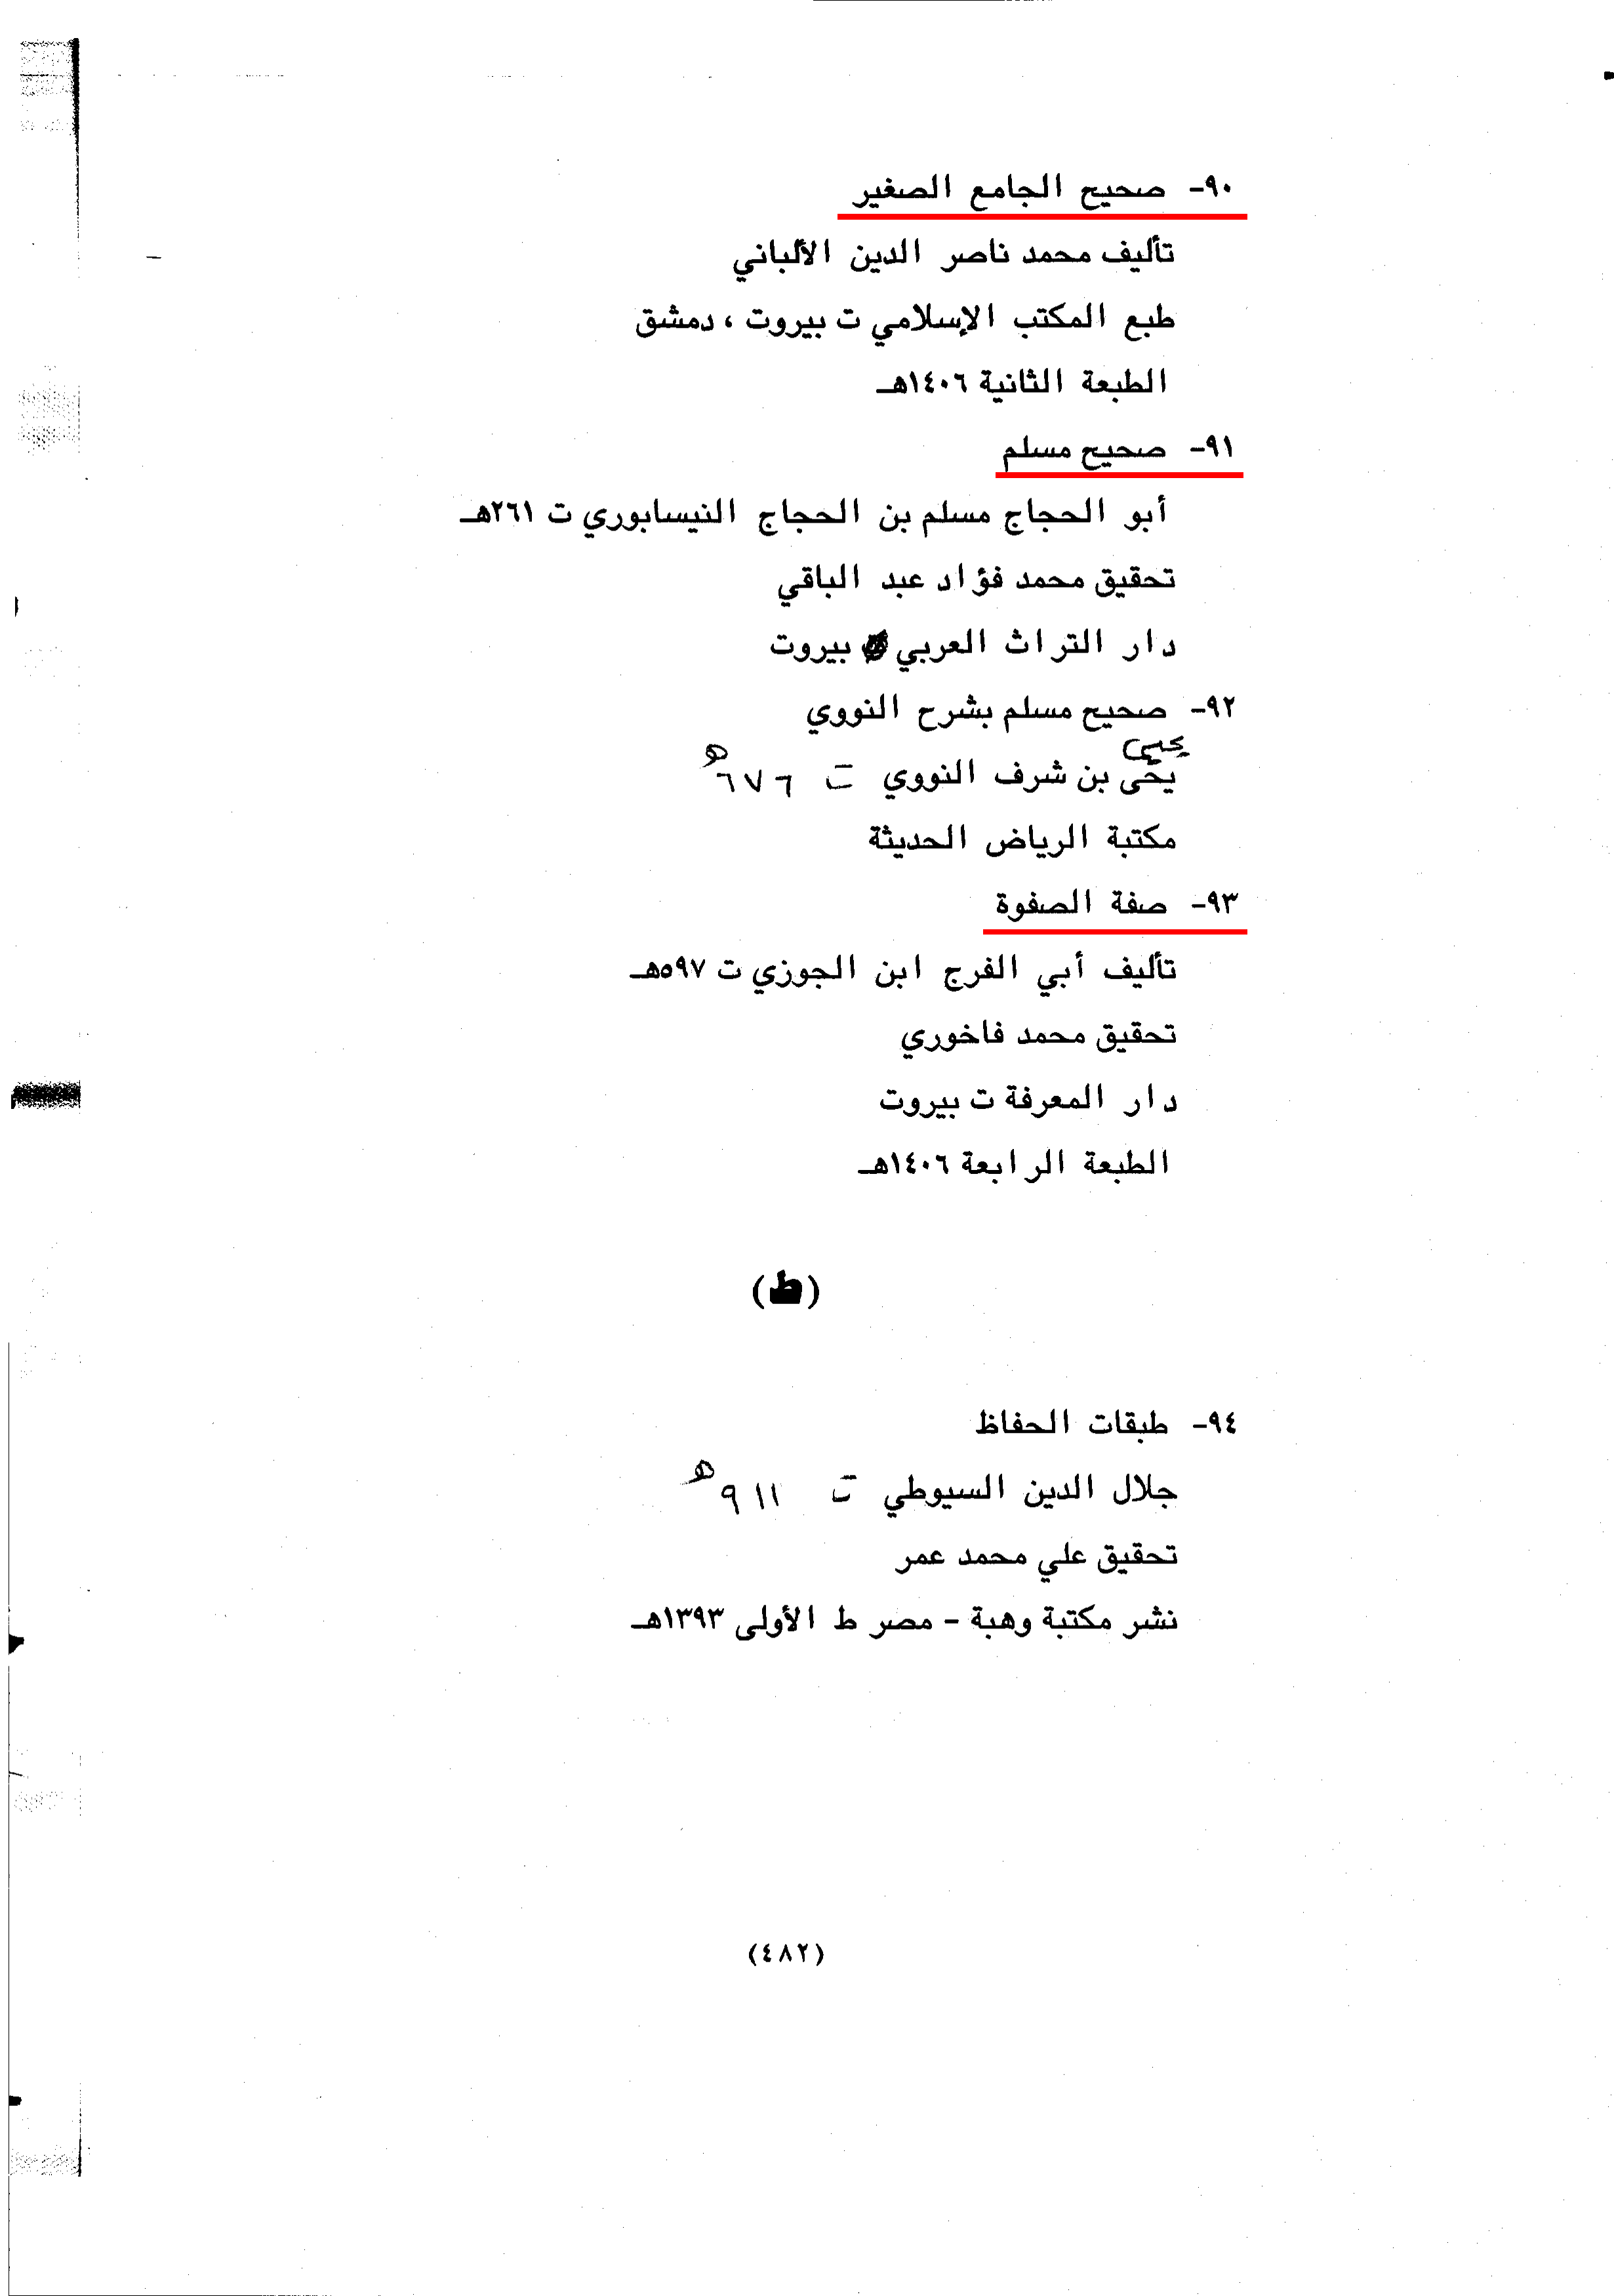 ٩٠- صحيح الجامع الصغير
تأليف محمد ناصر الدين الألباني
طبع المكتب الإسلامي ت بيروت ، دمشق
الطبعة الثانية ١٤٠٦هـ
٩١- صحيح مسلم
أبو الحجاج مسلم بن الحجاج النيسابوري ت ٢٦١هـ
تحقيق محمد فؤاد عبد الباقي
دار التراث العربي بيروت
٩٢- صحيح مسلم بشرح النووي
يحيى
يحى بن شرف النووي ت ٦٧٦هـ
مكتبة الرياض الحديثة
٩٣- صفة الصفوة
تأليف أبي الفرج ابن الجوزي ت ٥٩٧هـ
تحقيق محمد فاخوري
دار المعرفة ت بيروت
الطبعة الرابعة ١٤٠٦هـ
(ط)
٩٤- طبقات الحفاظ
جلال الدين السيوطي ت ٩١١هـ
تحقيق علي محمد عمر
نشر مكتبة وهبة - مصر ط الأولى ١٣٩٣هـ
(٤٨٢)